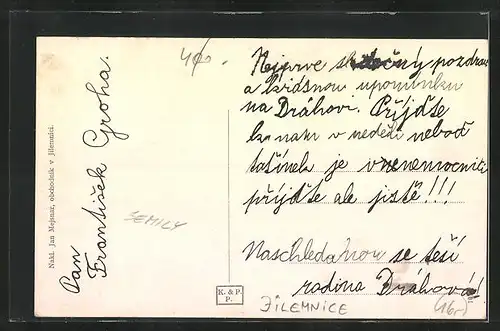 Nejprve srdečný pozdrav
a krásnou upomínku
na Dráhov. Přijďte
k nám v neděli neboď
tatínek je v nenemocnici
přijďte ale jistě!!!
Naschledanou se těší
rodina Dráhová!
Pan
František Groha.
Nakl. Jan Mejsnar, obchodník v Jilemnici.
SEMILY
K. & P.
P.
JILEMNICE